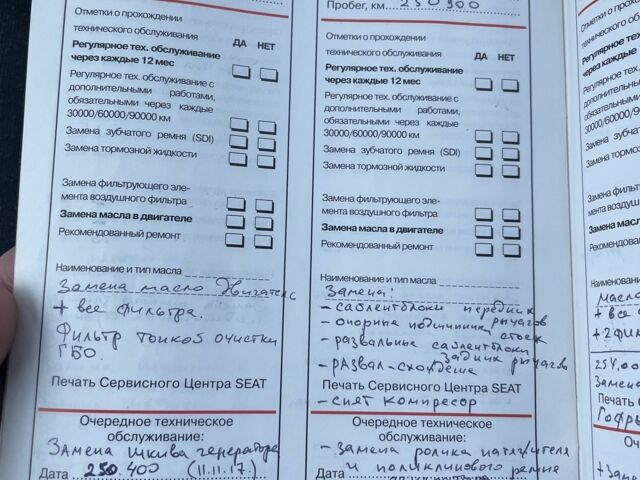 Отметки о прохождении
технического обслуживания
ДА НЕТ
Регулярное тех. обслуживание
через каждые 12 мес
Регулярное тех. обслуживание с
дополнительными работами,
обязательными через каждые
30000/60000/90000 км
Замена зубчатого ремня (SDI)
Замена тормозной жидкости
Замена фильтрующего эле-
мента воздушного фильтра
Замена масла в двигателе
Рекомендованный ремонт
Наименование и тип масла
Замена масло Двигателс
+ все фильтра.
Фильтр тонкой очистки
ГБО.
Печать Сервисного Центра SEAT
Очередное техническое
обслуживание:
Замена шкива генератора
Дата 250.400 (11.11.17.)
Пробег, км 250900
Отметки о прохождении
технического обслуживания
ДА НЕТ
Регулярное тех. обслуживание
через каждые 12 мес
Регулярное тех. обслуживание с
дополнительными работами,
обязательными через каждые
30000/60000/90000 км
Замена зубчатого ремня (SDI)
Замена тормозной жидкости
Замена фильтрующего эле-
мента воздушного фильтра
Замена масла в двигателе
Рекомендованный ремонт
Наименование и тип масла
Замена:
- саблентблоки передних
рычагов
- опорные подшипники стоек
- развальные саблентблоки
Задних рычагов
- РАЗВАЛ-схождение
Печать Сервисного Центра SEAT
- снят компресор
Очередное техническое
обслуживание:
- Замена ролика натяжителя
Дата и поликлинового ремня
Отметки о
технического
Регулярное
через кажды
Регулярное
дополнител
обязательны
30000/60000/
Замена зубчато
Замена тормозн
Замена фильтр
мента воздушн
Замена масла
Рекомендованн
Наименование
Масло
+ все
+ 2 фил
254.00
Замена
Печать
Гофры
Оч